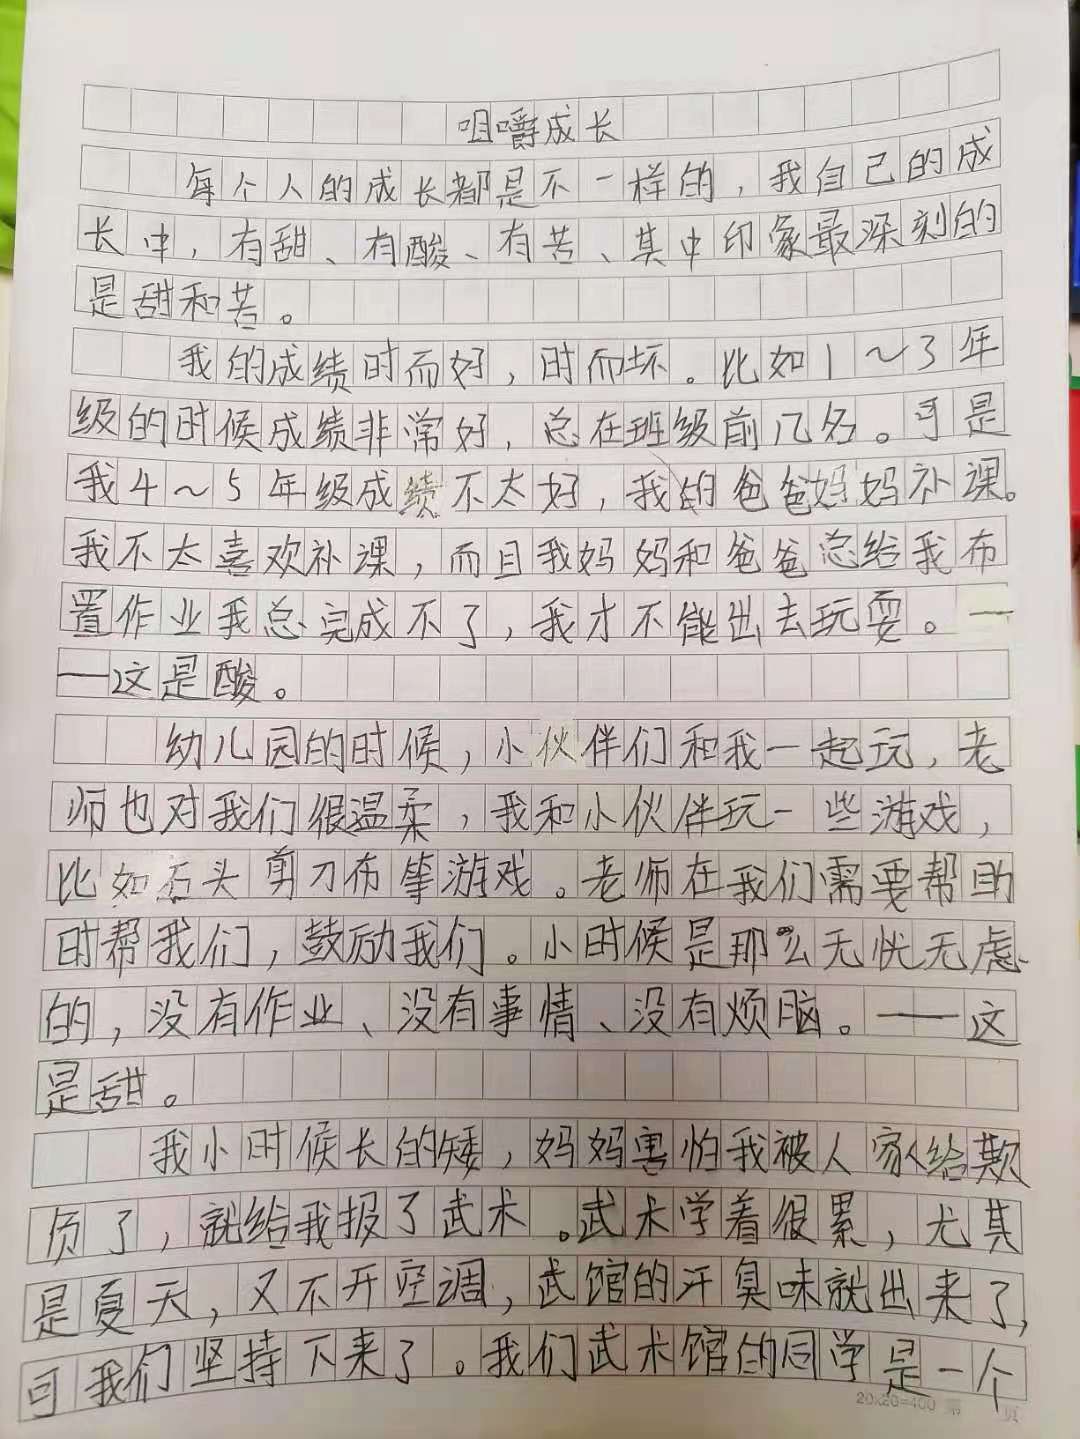 咀嚼成长
每个人的成长都是不一样的，我自己的成
长中，有甜、有酸、有苦、其中印象最深刻的
是甜和苦。
我的成绩时而好，时而坏。比如1～3年
级的时候成绩非常好，总在班级前几名。可是
我4～5年级成绩不太好，我的爸爸妈妈补课。
我不太喜欢补课，而且我妈妈和爸爸总给我布
置作业我总完成不了，我才不能出去玩耍。—
—这是酸。
幼儿园的时候，小伙伴们和我一起玩，老
师也对我们很温柔，我和小伙伴玩一些游戏，
比如石头剪刀布等游戏。老师在我们需要帮助
时帮我们，鼓励我们。小时候是那么无忧无虑
的，没有作业、没有事情、没有烦脑。——这
是甜。
我小时候长的矮，妈妈害怕我被人家给欺
负了，就给我报了武术。武术学着很累，尤其
是夏天，又不开空调，武馆的汗臭味就出来了，
可我们坚持下来了。我们武术馆的同学是一个
20x20=400 第 页